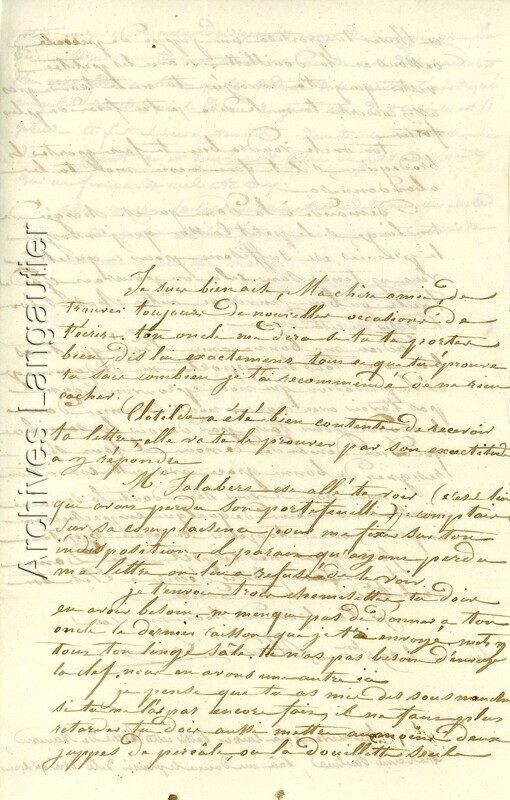 Je suis bien aise, Ma chère amie, de
trouver toujours de nouvelles occasions de
t'écrire, ton oncle me dira si tu te portes
bien dis lui exactement tout ce que tu éprouve
tu sais combien je t'ai recommandé de ne rien
cacher.
Clotilda a été bien contente de recevoir
ta lettre, elle va te le prouver par son exactitude
a y répondre
Mr Jalabert est allé te voir (c'est lui
qui avait perdu son portefeuille) je comptais
sur sa complaisence pour me fixer sur ton
indisposition, il parait qu'ayant perdu
ma lettre on lui a refusé de te voir.
je t'envoie trois chemisettes, tu dois
en avoir besoin. ne manque pas de donner a ton
oncle le dernier caisson que je t'ai envoyé
tous ton linge sale. tu n'as pas besoin d'envoyer
la clef, nous en avons une autre ici
je pense que tu as mis des sous manches
si tu ne l'as pas encore fait, il ne faut plus
retarder, tu dois aussi mettre au moins deux
juppes de percale, ou la douillette seule
Archives Langaufier